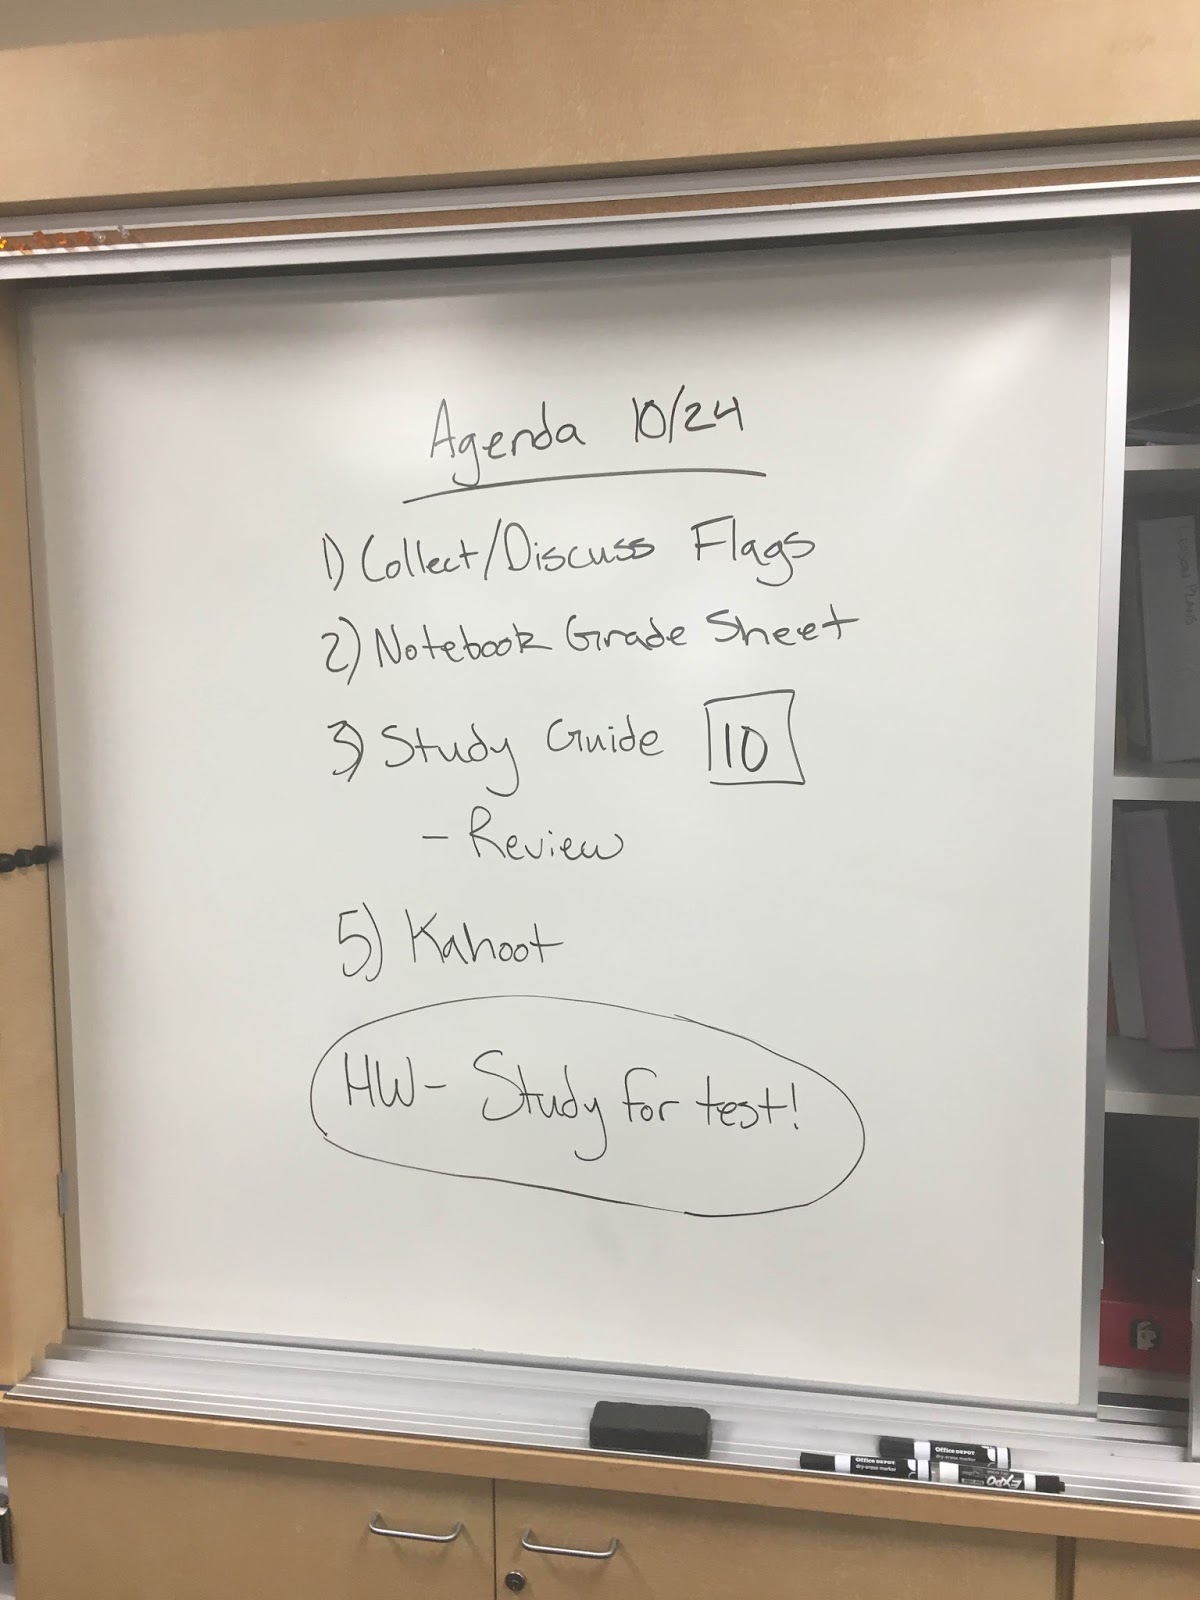 Agenda 10/24
1) Collect/Discuss Flags
2) Notebook Grade Sheet
3) Study Guide 10
- Review
5) Kahoot
HW- Study for test!
Office DEPOT
dry-erase marker
Office DEPOT
dry-erase marker
EXPO